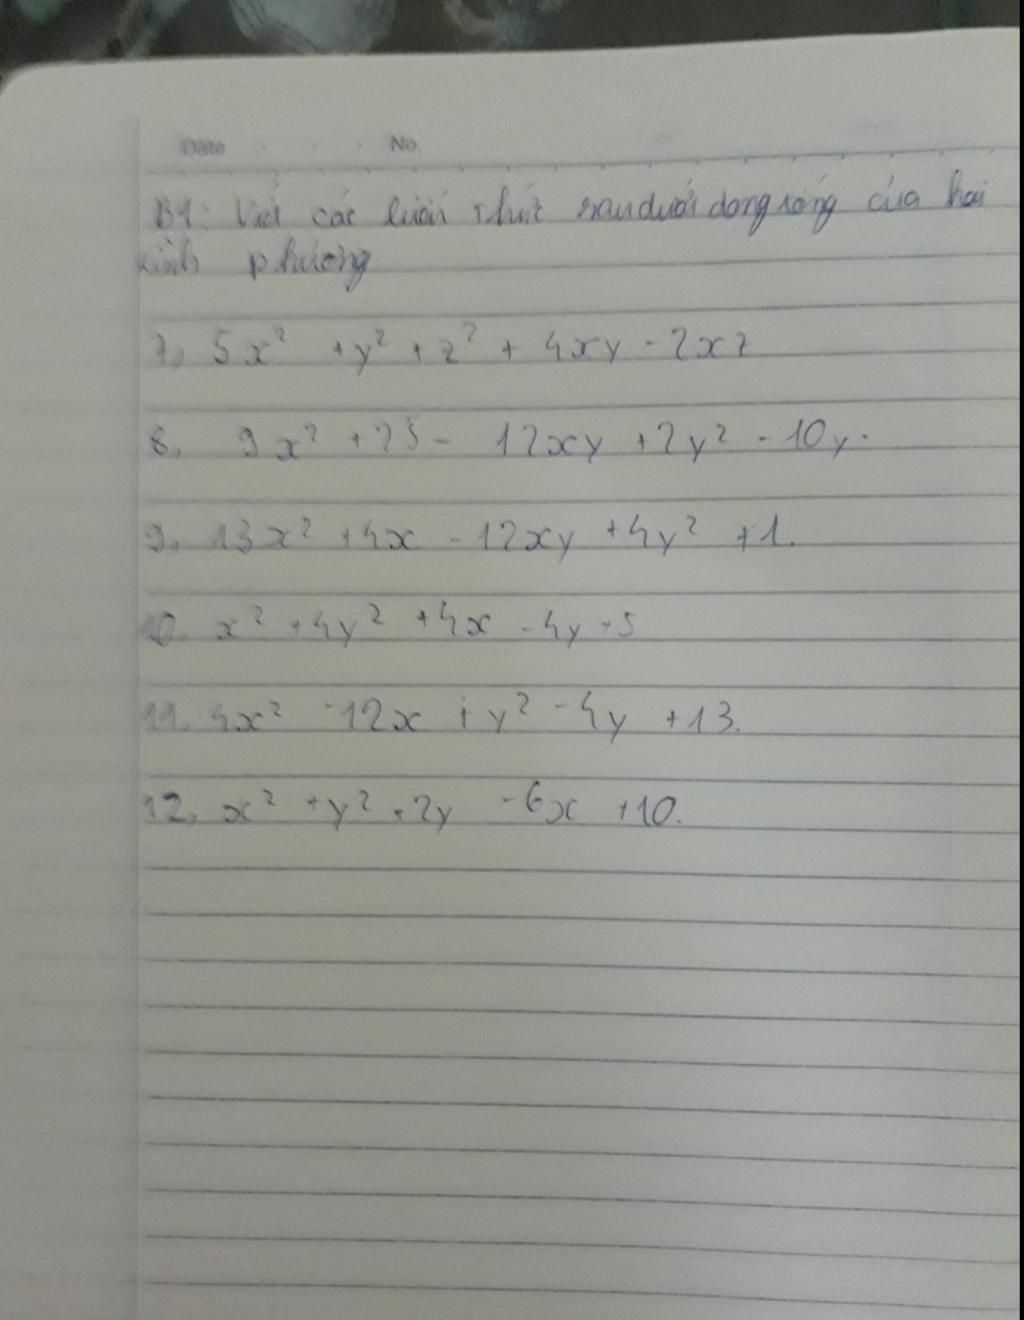 Date No.
B1: Viết các biểu thức sau dưới dạng tổng của hai
bình phương
7, 5x² + y² + z² + 4xy - 2xz
8, 9x² + 25 - 12xy + 2y² - 10y.
9, 13x² + 4x - 12xy + 4y² + 1.
10. x² + 4y² + 4x - 4y + 5
11. 4x² - 12x + y² - 4y + 13.
12, x² + y² + 2y - 6x + 10.